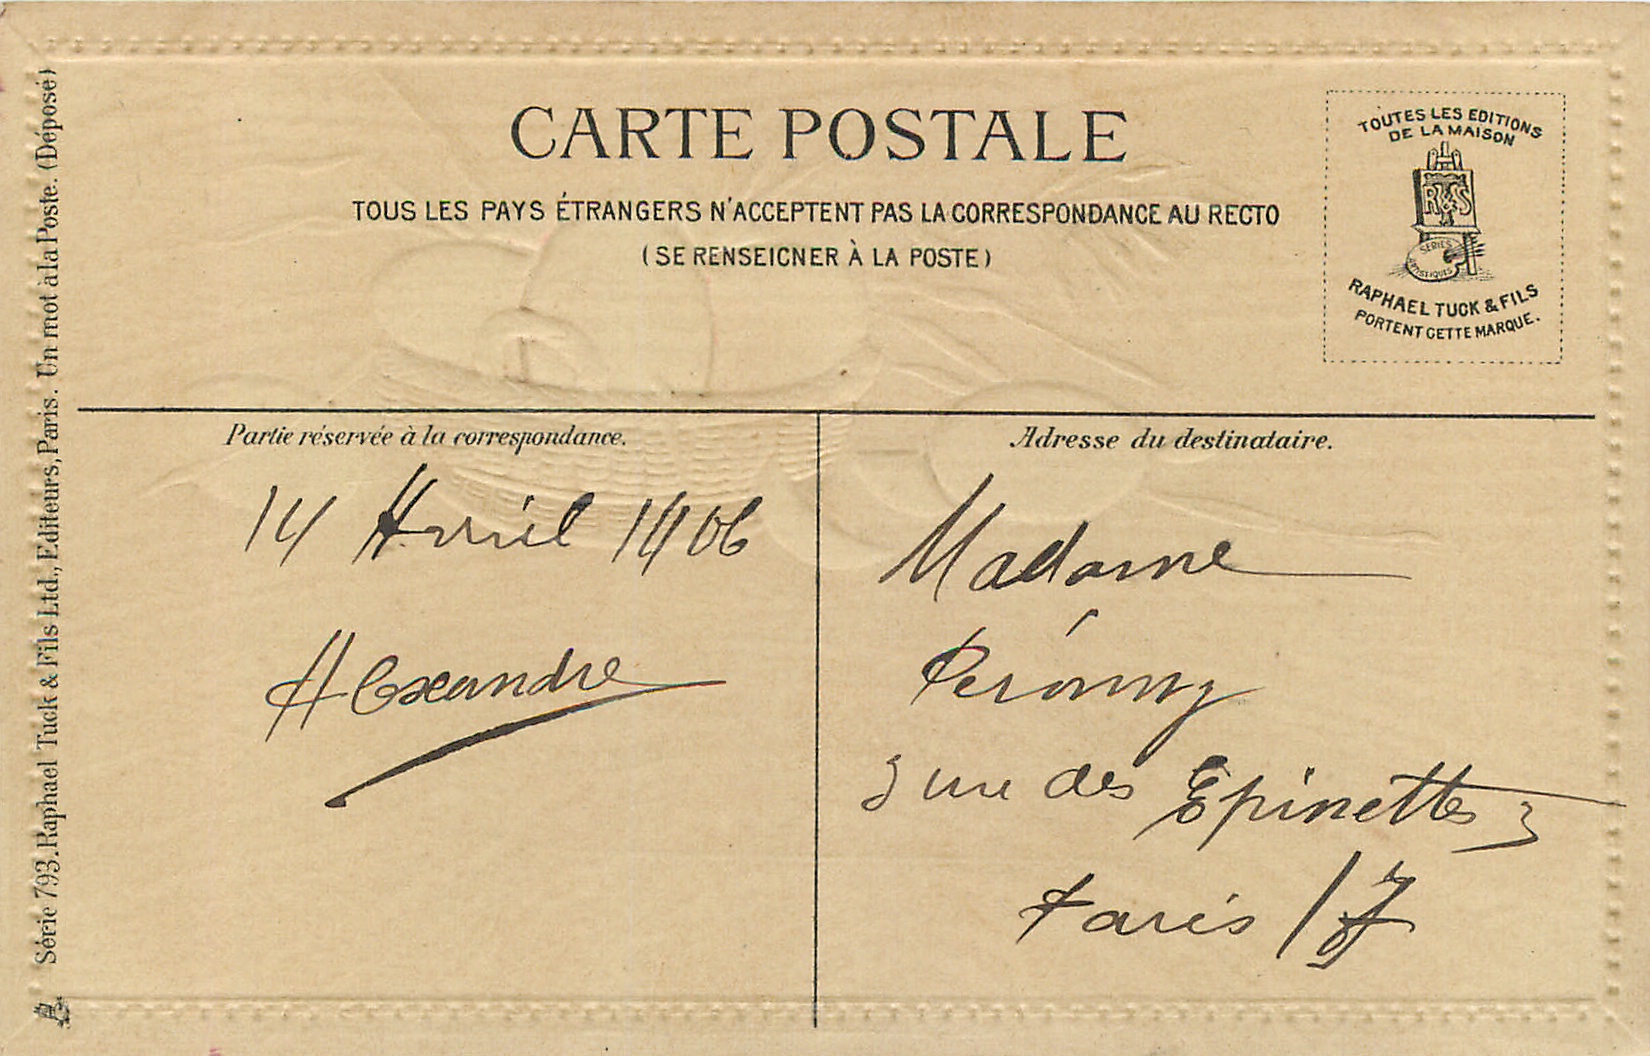 CARTE POSTALE
TOUS LES PAYS ÉTRANGERS N'ACCEPTENT PAS LA CORRESPONDANCE AU RECTO
(SE RENSEIGNER À LA POSTE)
TOUTES LES EDITIONS
DE LA MAISON
RT&S
SERIES
ARTISTIQUES
RAPHAEL TUCK & FILS
PORTENT CETTE MARQUE.
Série 793. Raphael Tuck & Fils Ltd., Editeurs, Paris. Un mot à la Poste. (Déposé)
Partie réservée à la correspondance.
14 Avril 1906
Alexandre
Adresse du destinataire.
Madame
3 rue des Epinettes 3
Paris 17